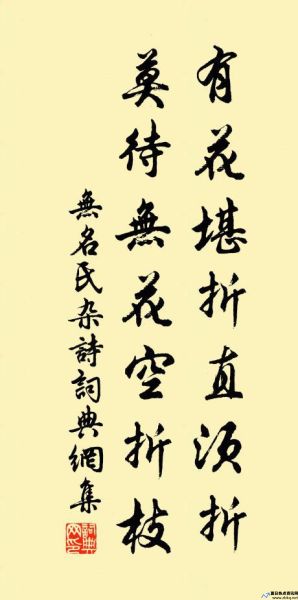 有花堪折直须折
莫待無花空折枝
無名氏杂詩詞典網集